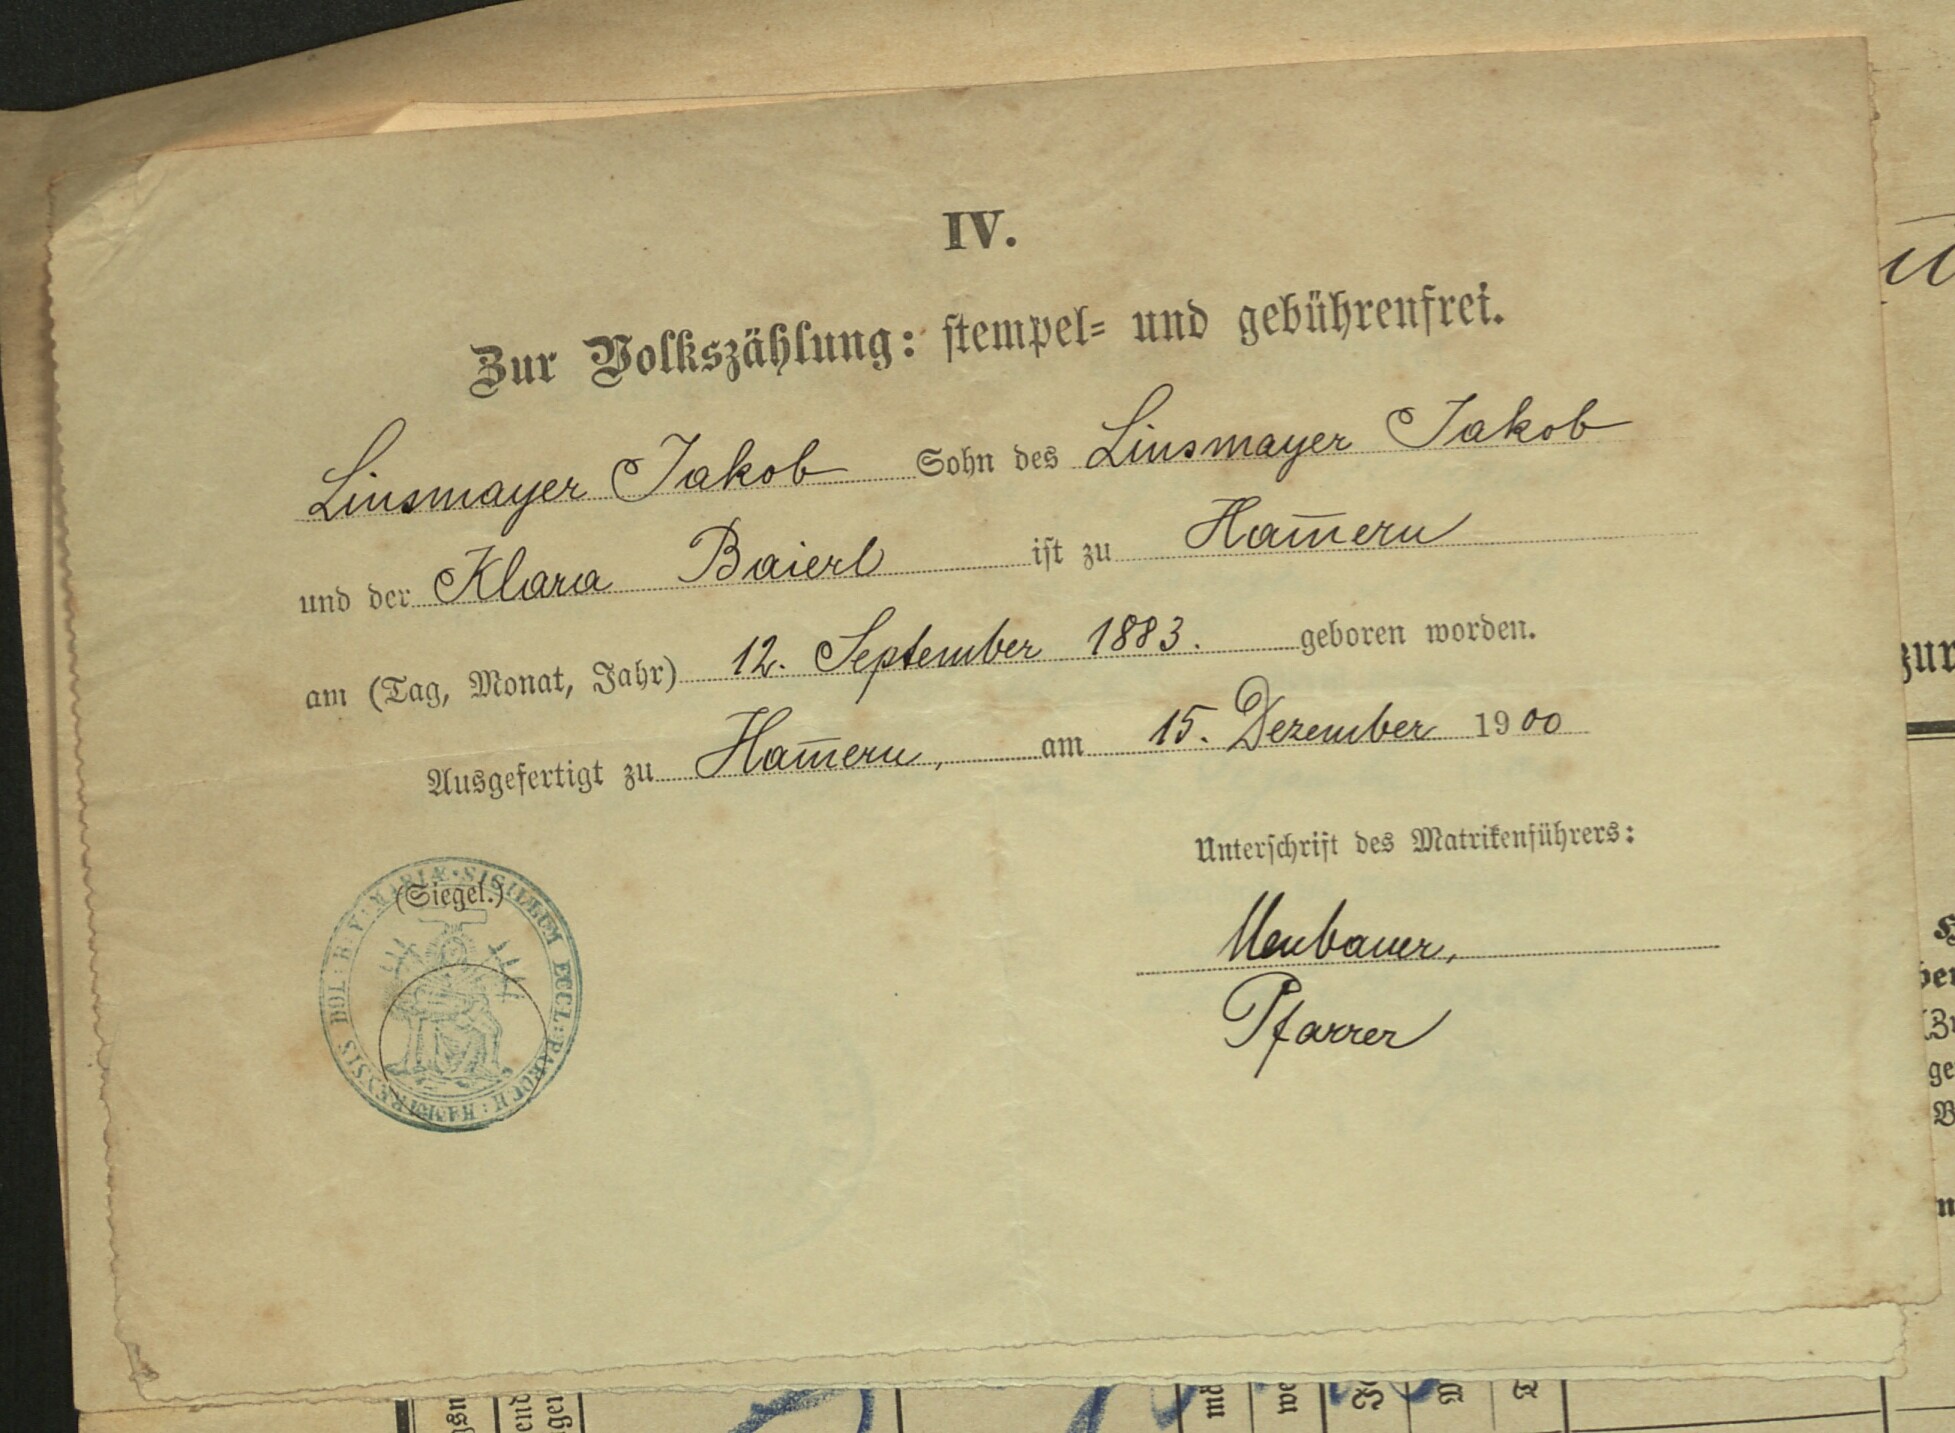 IV.
Zur Volkszählung: stempel= und gebührenfrei.
Linsmayer Jakob Sohn des Linsmayer Jakob
und der Klara Baierl ist zu Ham̅ern
am (Tag, Monat, Jahr) 12. September 1883. geboren worden.
Ausgefertigt zu Ham̅ern, am 15. Dezember 1900
Unterschrift des Matrikenführers:
(Siegel.)
SIGILLUM ECCL: PAROCH: HAMMRENSIS DOL: B. V. MARIÆ
Neubauer,
Pfarrer
zur
ge
we